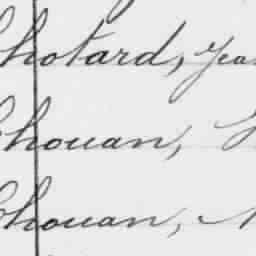 Chotard, Jea
Chouan,
Chouan,